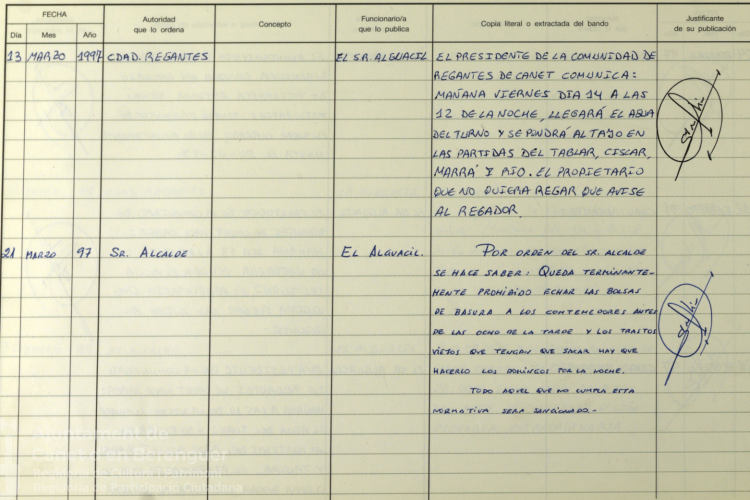 FECHA
Autoridad
que lo ordena
Concepto
Funcionario/a
que lo publica
Copia literal o extractada del bando
Justificante
de su publicación
Día Mes Año
13 MARZO 1997 CDAD. REGANTES EL SR. ALGUACIL EL PRESIDENTE DE LA COMUNIDAD DE
REGANTES DE CANET COMUNICA:
MAÑANA VIERNES DIA 14 A LAS
12 DE LA NOCHE, LLEGARÁ EL AGUA
DEL TURNO Y SE PONDRÁ AL TAJO EN
LAS PARTIDAS DEL TABLAR, CISCAR,
MARRÁ Y RIO. EL PROPIETARIO
QUE NO QUIERA REGAR QUE AVISE
AL REGADOR.
21 MARZO 97 SR. ALCALDE EL ALGUACIL. POR ORDEN DEL SR. ALCALDE
SE HACE SABER: QUEDA TERMINANTE-
MENTE PROHIBIDO ECHAR LAS BOLSAS
DE BASURA A LOS CONTENEDORES ANTES
DE LAS OCHO DE LA TARDE Y LOS TRASTOS
VIEJOS QUE TENGAN QUE SACAR HAY QUE
HACERLO LOS DOMINGOS POR LA NOCHE.
TODO AQUEL QUE NO CUMPLA ESTA
NORMATIVA SERA SANCIONADO.-
Ajuntament de
Canet d'En Berenguer
Regidoria de Participació Ciutadana